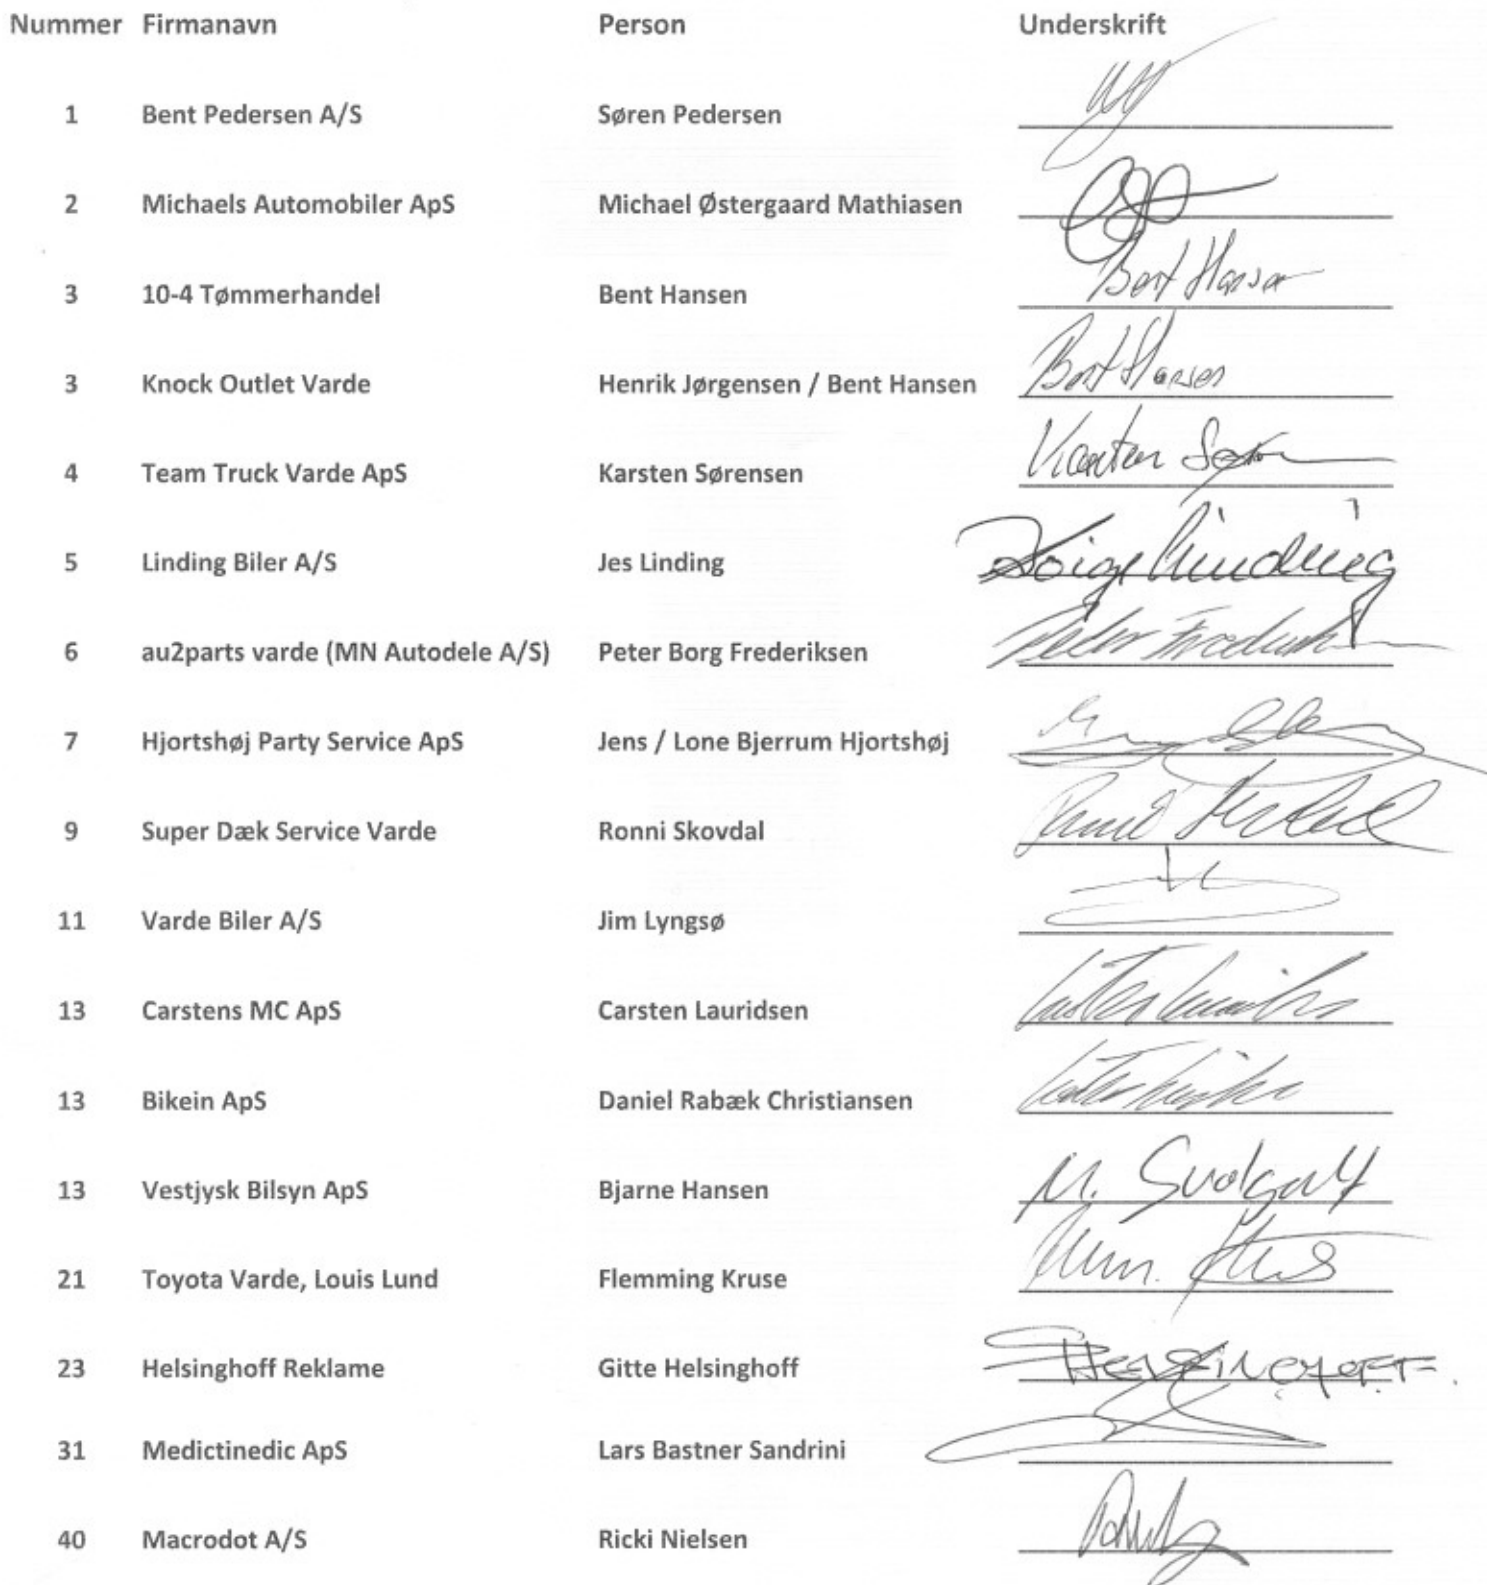 Nummer Firmanavn Person Underskrift
1 Bent Pedersen A/S Søren Pedersen
2 Michaels Automobiler ApS Michael Østergaard Mathiasen
3 10-4 Tømmerhandel Bent Hansen Bent Hansen
3 Knock Outlet Varde Henrik Jørgensen / Bent Hansen Bent Hansen
4 Team Truck Varde ApS Karsten Sørensen Karsten
5 Linding Biler A/S Jes Linding Linding
6 au2parts varde (MN Autodele A/S) Peter Borg Frederiksen Peter
7 Hjortshøj Party Service ApS Jens / Lone Bjerrum Hjortshøj
9 Super Dæk Service Varde Ronni Skovdal
11 Varde Biler A/S Jim Lyngsø
13 Carstens MC ApS Carsten Lauridsen
13 Bikein ApS Daniel Rabæk Christiansen
13 Vestjysk Bilsyn ApS Bjarne Hansen
21 Toyota Varde, Louis Lund Flemming Kruse
23 Helsinghoff Reklame Gitte Helsinghoff
31 Medictinedic ApS Lars Bastner Sandrini
40 Macrodot A/S Ricki Nielsen